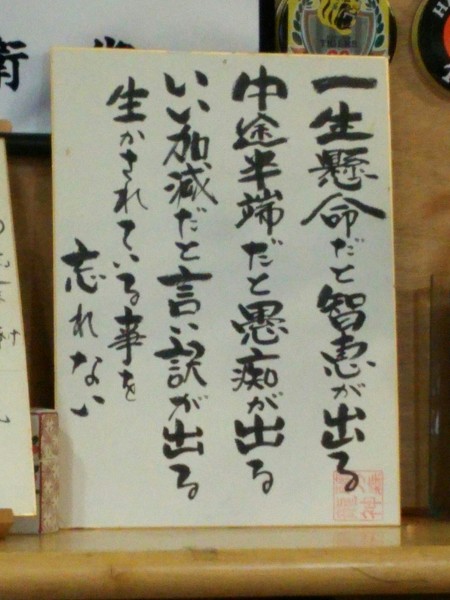 一生懸命だと智恵が出る
中途半端だと愚痴が出る
いい加減だと言い訳が出る
生かされている事を
忘れない